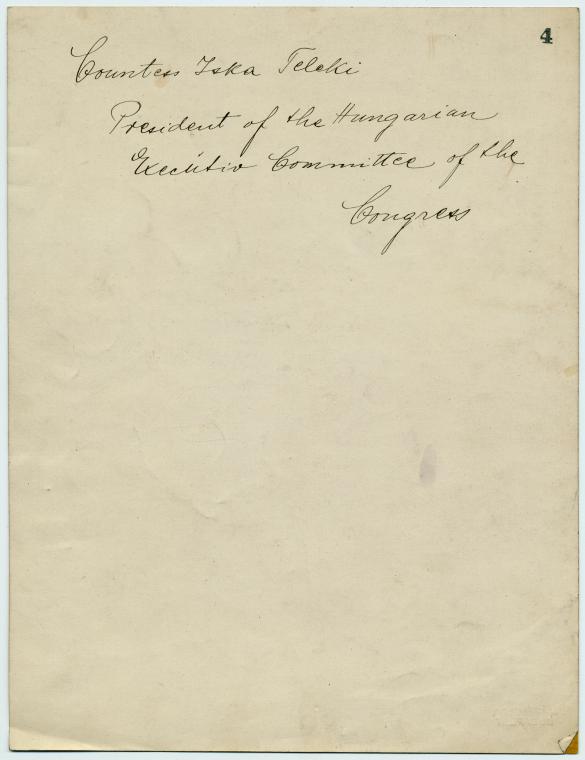 4
Countess Iska Teleki
President of the Hungarian
Executiv Committee of the
Congress